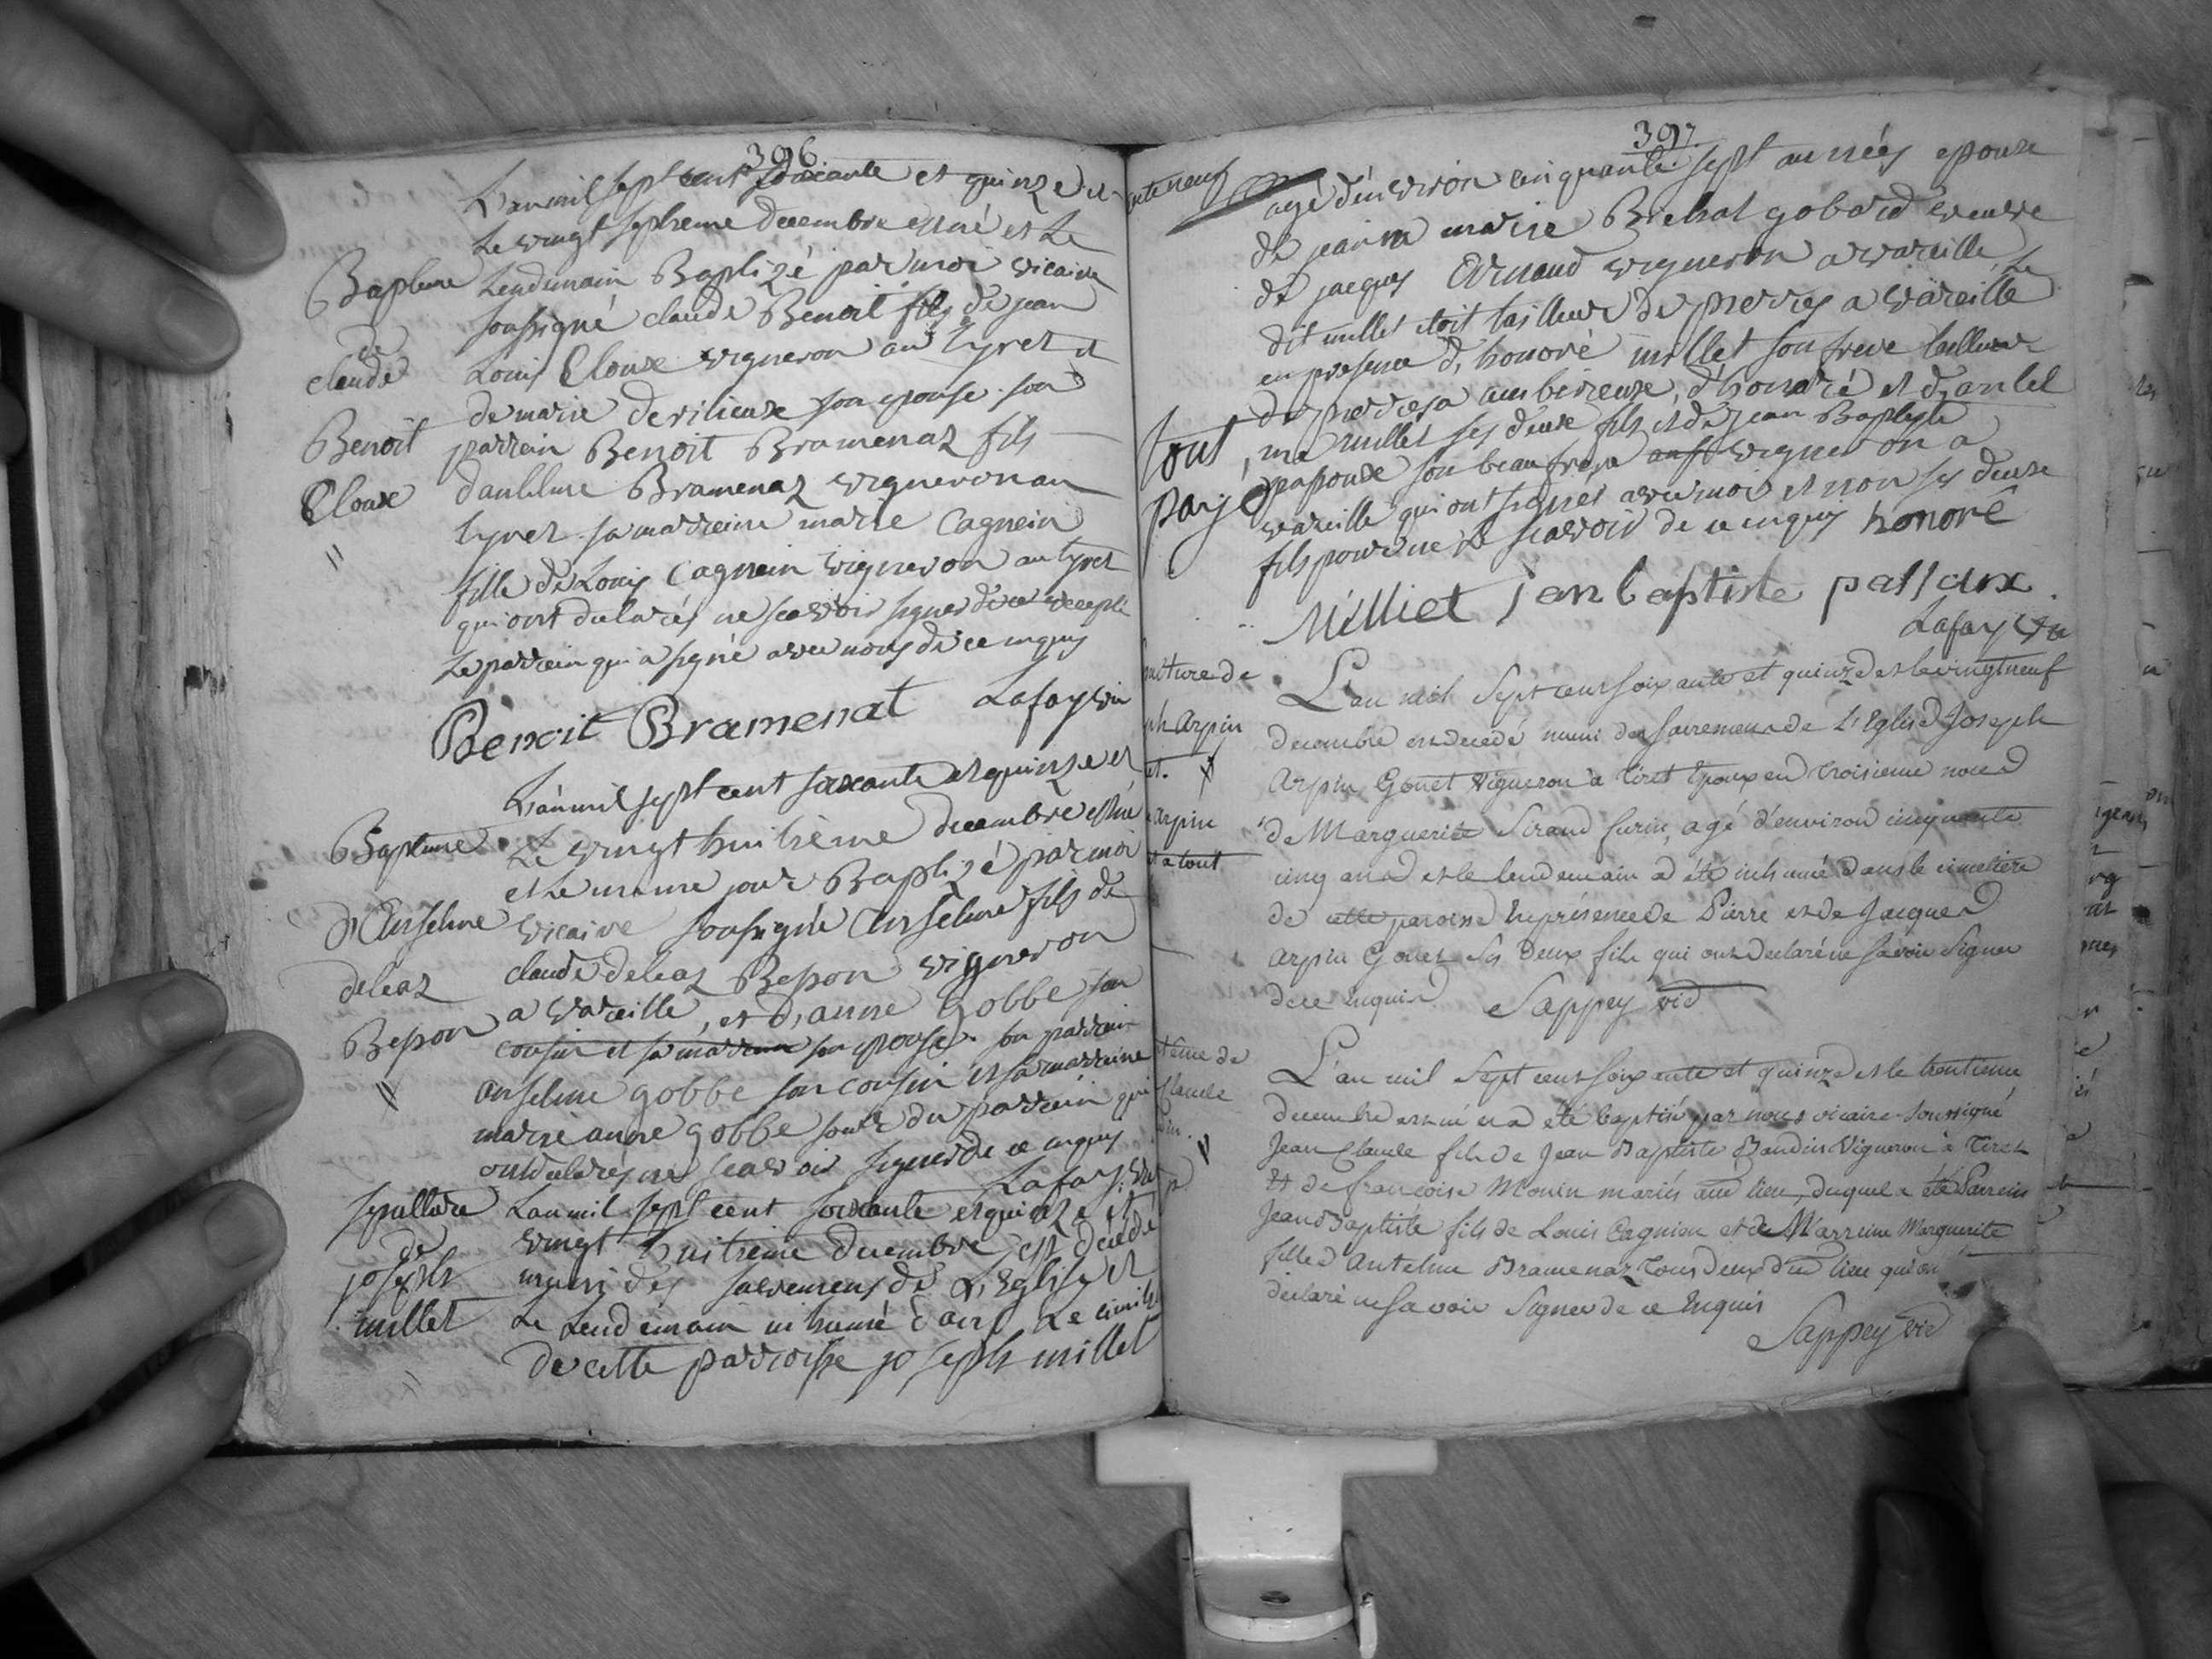 396
L'an mil sept cent soixante et quinze et
Le vingt septieme decembre est né et Le
Lendemain Baptizé par moi vicaire
soussigné claude Benoit fils de jean
Louis Cloux vigneron au tyret et
de marie son epouse. son
parrain Benoit Bramenaz fils
d'anthelme Bramenaz vigneron au
tyret. sa marraine marie Cagnein
fille de Louis Cagnein vigneron au tyret
qui ont declarés ne scavoir signer de ce excepté
Le parrain qui a signé avec nous de ce enquis
Benoit Bramenat Lafay vic
Bapteme
de
claude
Benoit
Cloux
L'an mil sept cent soixante et quinze et
Le vingt huitième decembre est né
et Le meme jour Baptizé par moi
vicaire soussigné Anselme fils de
claude deleaz Bepon vigneron
a vareille, et d'anne gobbe son
cousin et sa marraine son epouse. son parrain
anselme gobbe son cousin et sa marraine
marie anne gobbe soeur du parrain qui
ont declarés ne scavoir signer de ce enquis
Lafay. vic
Bapteme
d'Anselme
deleaz
Bepon
L'an mil sept cent soixante et quinze et
vingt huitieme decembre est décédé
muni des sacremens de L'Eglise et
Le Lendemain inhumé dans Le cimit
de cette parroisse joseph millet
sepulture
de
joseph
millet
397
agé d'environ cinquante sept années epoux
de jeanne marie Bichat gobard veuve
de jacques Arnaud vigneron a vareille, Le
dit millet etoit tailleur de pierres a vareille
en presence d'honoré millet son frere tailleur
de pierres a ambereux, d'honoré et d'antel
me millet ses deux fils et de jean Baptiste
papoux son beau frere vigneron a
vareille qui ont signés avec moi et non ses deux
fils pour ne Le scavoir de ce enquis honoré
Milliet jean baptiste passaux
Lafay vic
tout
payé
L'an mil sept cent soixante et quinze et le vingt neuf
decembre est decedé muni des sacremens de L'Eglise Joseph
Arpin Gonet Vigneron a Tiret Epoux en troisieme noces
de Marguerite Sirand Curin, agé d'environ cinquante
cinq ans et le lendemain a été inhumé dans le cimetiere
de cette paroisse En présence de Pierre et de Jacques
Arpin Gonet Ses Deux fils qui ont declaré ne savoir Signer
de ce Enquis Sappey vic
ulture de
ph Arpin
et.
Arpin
a tout
L'an mil Sept cent soixante et quinze et le trentieme
decembre est né et a été baptisé par nous vicaire soussigné
Jean Claude fils de Jean Baptiste Baudin Vigneron à Tiret
Et de francoise Monin mariés au dit lieu, duquel a été Parrein
Jean Baptiste fils de Louis Cagnien et de Marreine Marguerite
fille d'Antelme Bramenaz Tous deux du dit lieu qui ont
déclaré ne Savoir Signer de ce Enquis
Sappey vic
tême de
Claude